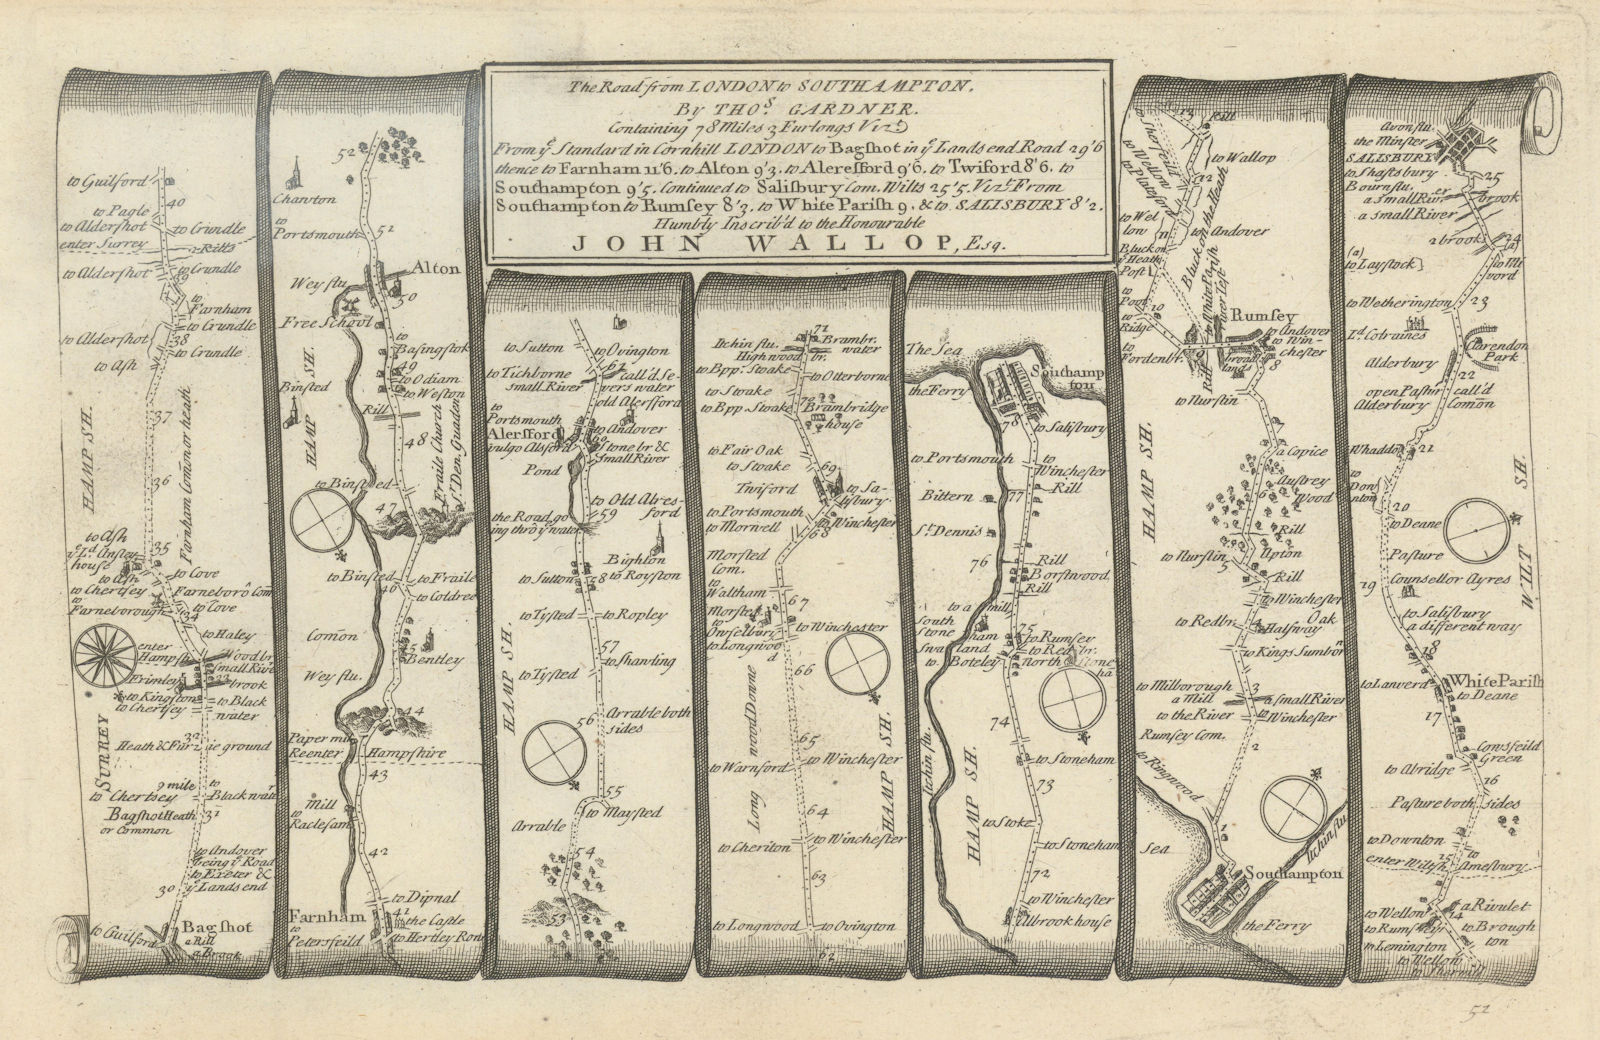 The Road from LONDON to SOUTHAMPTON.
By THOS. GARDNER.
Containing 78 Miles 3 Furlongs Vizt.
From ye. Standard in Cornhill LONDON to Bagshot in ye. Lands end Road 29'6
thence to Farnham 11'6. to Alton 9'3. to Alersford 9'6. to Twiford 8'6. to
Southampton 9'5. Continued to Salisbury Com. Wilts 25'5. Vizt. From
Southampton to Rumsey 8'3. to White Parish 9. & to SALISBURY 8'2.
Humbly Inscrib'd to the Honourable
JOHN WALLOP, Esq.
to Guilford
40
to Pagle
to Aldershot
to Crundle
enter Surrey
a Rill
to Aldershot
to Crundle
39
to Farnham
to Crundle
to Aldershot
38
to Crundle
to Ash
HAMP SH.
37
Farnham Comon or heath
36
to Ash
ye Ld. Ansley
house
35
to Ash
to Cove
to Chertsey
Farneboro Com
to Farneborough
to Cove
34
to Haley
enter
Hampsh
Wood br.
small River
Frimley
33
brook
to Kingston
to Black
water
to Chertsey
SURREY
32
Heath & Furzie ground
9 mile
to Chertsey
to Blackwater
Bagshot Heath
or Common
31
to Andover
being ye Road
to Exeter &
ye Lands end
30
to Guilford
Bagshot
a Rill
a Brook
52
Chawton
to Portsmouth
51
Alton
Wey flu
50
Free School
to Basingstok
HAMP SH.
49
to Odiam
to Weston
Binsted
Rill
48
Fraile Church
St. Den. Guarden
to Binsted
47
to Binsted
to Fraile
46
to Coldree
Comon
45
Bentley
Wey flu.
44
Paper mill
Reenter
Hampshire
43
Mill
to Raclesam
42
to Dipnal
Farnham
41
the Castle
to Petersfeild
to Hertley Row
to Sutton
to Ovington
61
to Tichborne
small River
call'd Se-
vers water
old Alersford
to Portsmouth
to Andover
Alersford
vulgo Alsford
60
Stone br &
small River
Pond
to Old Alres-
ford
the Road go
ing thro ye water
59
Bighton
to Sutton
58
to Royston
to Tysted
to Ropley
57
to Shanding
HAMP SH.
to Tysted
56
Arrable both
sides
55
to Maysted
Arrable
54
53
71
Itchin flu.
Brambr.
water
Highwood
br.
to Bpp. Stoake
to Otterborne
to Stoake
70
to Bpp. Stoake
Brambridge
house
to Fair Oak
to Stoake
69
Twiford
to Sa-
lisbury
to Portsmouth
to Winchester
to Morwell
68
Morsted
Com.
to Waltham
67
Morsted
to Winchester
to Owselbury
to Longwood
66
Long wood Downe
HAMP SH.
65
to Winchester
to Warnford
64
to Winchester
to Cheriton
63
to Longwood
to Ovington
62
The Sea
Southampton
the Ferry
78
to Salisbury
to Portsmouth
to Winchester
Bittern
77
Rill
St. Dennis
76
Rill
Borstwood
Rill
to a mill
South
Stone
ham
75
to Rumsey
Swathland
to Red br.
to Boteley
north Stone
ha
74
Itchin flu.
HAMP SH.
to Stoneham
73
to Stoke
to Stoneham
72
to Winchester
Allbrook house
13
Rill
to Sherfeild
to Wellow
to Plateford
to Wallop
12
to Wel
low
11
to Andover
Black on ye Heath
Post
Black on the Heath
White Parish
over Test
to Poor
10
to Ridge
Rumsey
to Andover
to Win-
chester
to Fordenbr.
Rill
9
broad
land
8
to Nurstin
a Copice
HAMP SH.
Austrey
Wood
6
Rill
to Nurstin
Upton
5
Rill
to Winchester
to Redbr.
4
Oak
Halfway
to Kings Sumborn
to Milborough
a Mill
3
a small River
to the River
to Winchester
Rumsey Com.
2
to Ringwood
1
Sea
Itchin flu
Southampton
the Ferry
Avon flu.
the Minster
SALISBURY
to Shaftsbury
25
Bourn flu.
a small River
brook
a small River
2 brooks
24
to Laystock
to Milford
to Wetherington
23
Ld. Cobraines
Clarendon
Park
Alderbury
22
open Pastur
call'd
Alderbury
Comon
Whaddon
21
to Donnton
20
to Deane
WILT SH.
Pasture
19
Counsellor Ayres
to Salisbury
a different way
18
to Lanverd
White Parish
to Deane
17
Cowsfeild
Green
to Abridge
16
Pasture both sides
to Downton
15
to Amesbury
enter Wiltsh
to Wellow
14
a Rivulet
to Rumsey
to Brough
ton
to Lemington
to Wellow
to Sherfeild
52